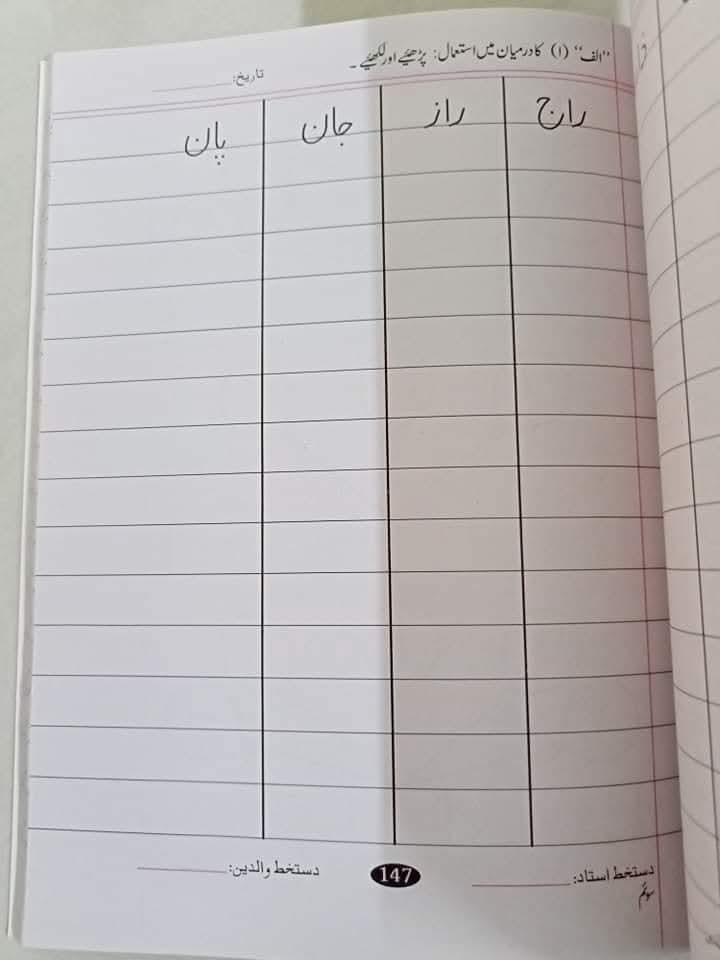 "الف" (ا) کا درمیان میں استعمال: پڑھئیے اور لکھئیے ۔
تاریخ:
راج راز جان پان
دستخط استاد: 147 دستخط والدین:
سوئم